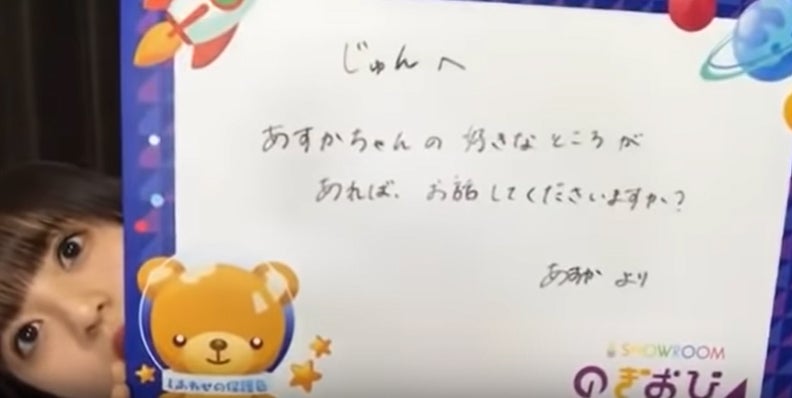 じゅんへ
あすかちゃんの好きなところが
あれば、お話してくださいますか?
あすかより
しあわせの保護色
SHOWROOM
のぎおび